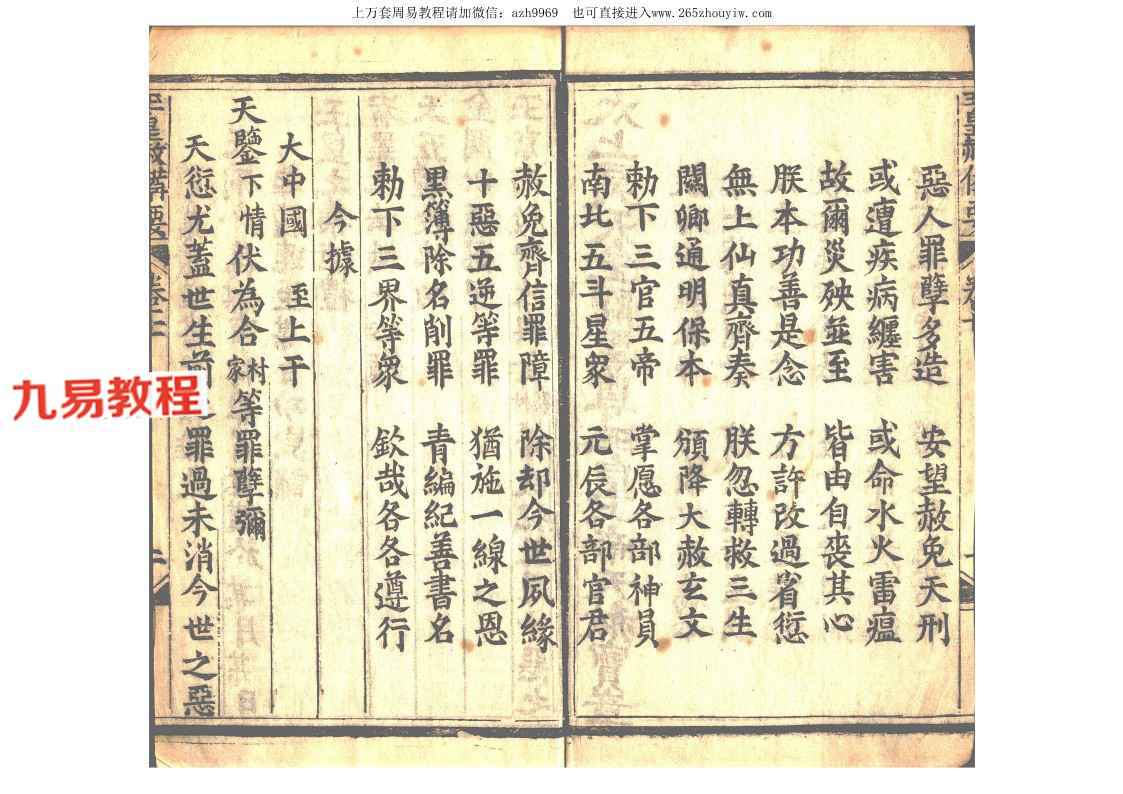 上万套周易教程请加微信：azh9969 也可直接进入www.265zhouyiw.com
惡人罪孽多造 安望赦免天刑
或遭疾病纏害 或命水火雷瘟
故爾災殃並至 皆由自喪其心
朕本功善是念 方許改過省愆
無上仙真齊奏 朕忽轉救三生
關卿通明保本 頒降大赦玄文
勅下三官五帝 掌愿各部神員
南北五斗星衆 元辰各部官君
赦免齊信罪障 除却今世夙緣
十惡五逆等罪 猶施一線之恩
黑簿除名削罪 青編紀善書名
勅下三界等衆 欽哉各各遵行
今據
大中國 至上干
天鑒下情伏為合村家等罪孽彌
天愆尤蓋世生前之罪過未消今世之惡
九易教程